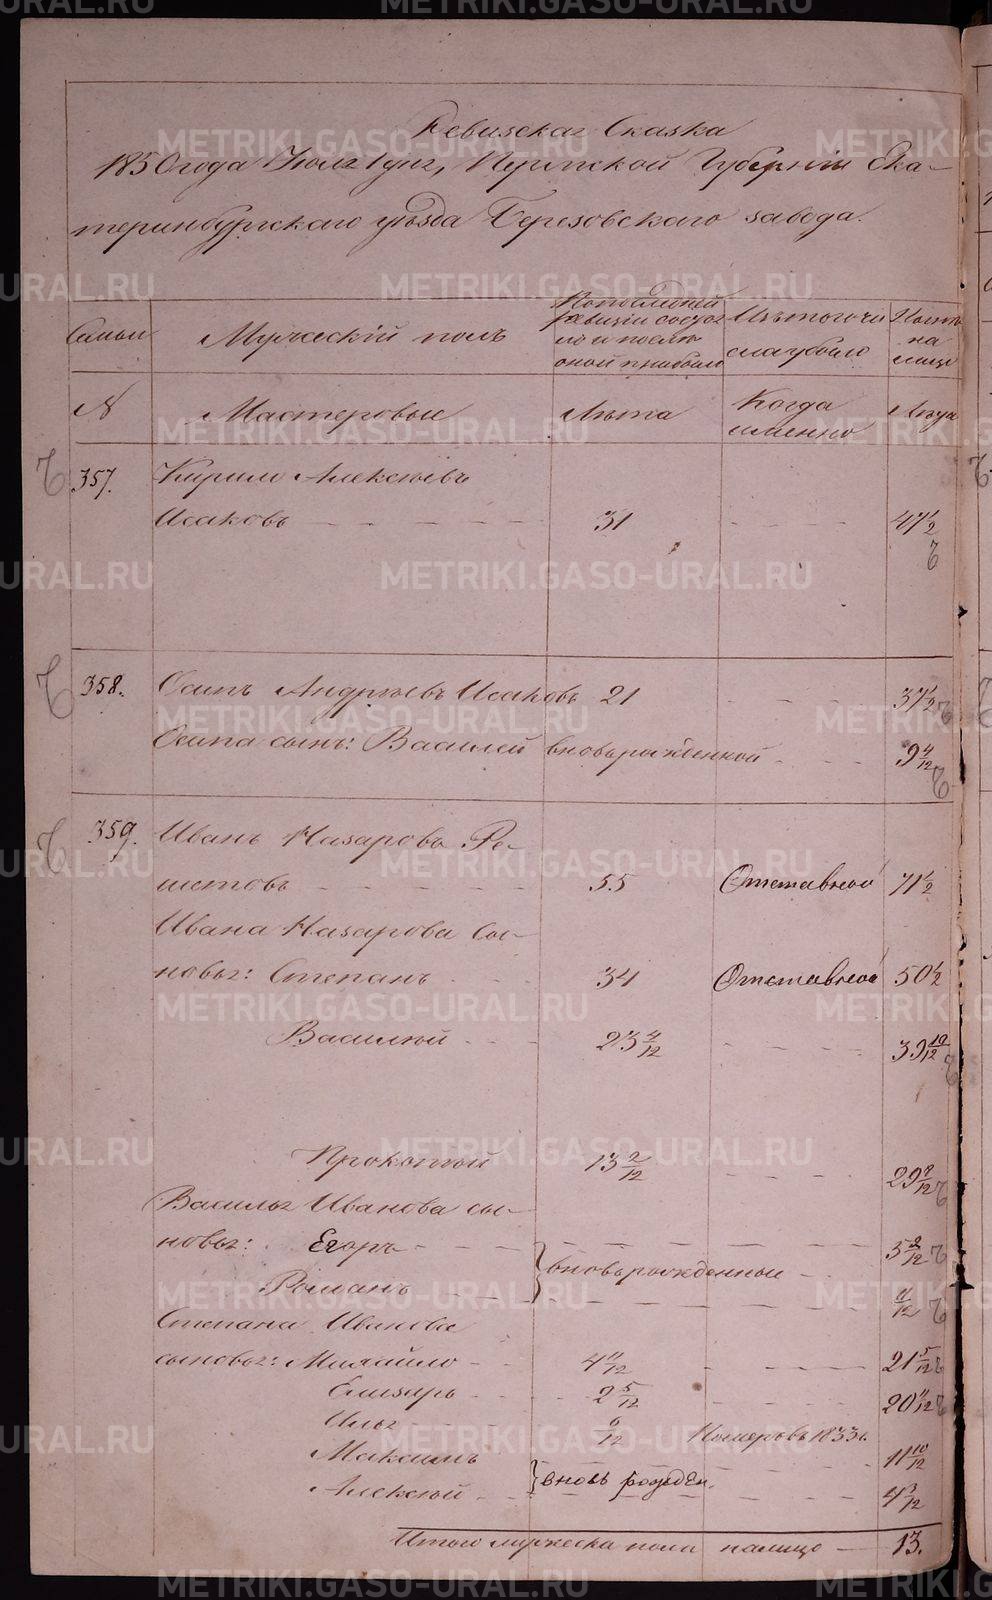 Ревизская Сказка
1850 года Июля 1 дня, Пермской Губернiи Ека-
теринбургскаго уѣзда Березовскаго завода.
Семьи
Мужескiй полъ
По последней ревизiи состояло и после оной прибыло
Изъ того числа убыло
Ныне на лицо
№
Мастеровые
Лѣта
Когда именно
Лѣта
357.
Кирило Алексѣевъ
Исаковъ 31 47 1/2
358. Осипъ Андрѣевъ Исаковъ 21 37 1/2
Осипа сынъ: Василей вновьрожденной 9 4/12
359. Иванъ Назаровъ Ре-
шетовъ 55 Отставной 71 1/2
Ивана Назарова сы-
новья: Степанъ 34 Отставной 50 1/2
Василей 23 4/12 39 10/12
Прокопей 13 2/12 29 8/12
Василья Иванова сы-
новья: Егоръ 5 2/12
вновьрожденные
Романъ
Степана Иванова
сыновья: Михайло 4 11/12 21 5/12
Елизаръ 2 5/12 20 11/12
Илья 6/12 Померъ въ 1833 г.
Максимъ 11 10/12
вновь рожден.
Алексей 4 3/12
Итого мужеска пола налицо 13.
METRIKI.GASO-URAL.RU